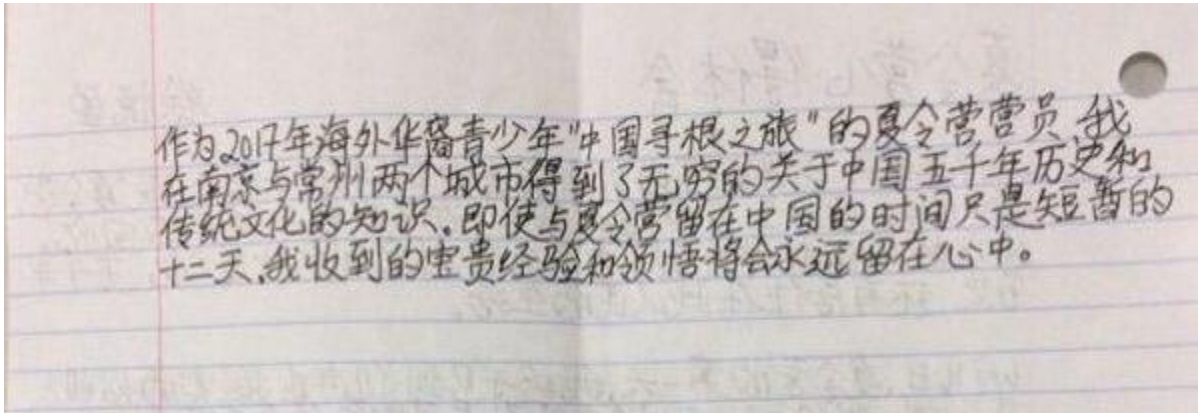 作为2017年海外华裔青少年"中国寻根之旅"的夏令营营员,我
在南京与常州两个城市得到了无穷的关于中国五千年历史和
传统文化的知识。即使与夏令营留在中国的时间只是短暂的
十二天,我收到的宝贵经验和领悟将会永远留在心中。